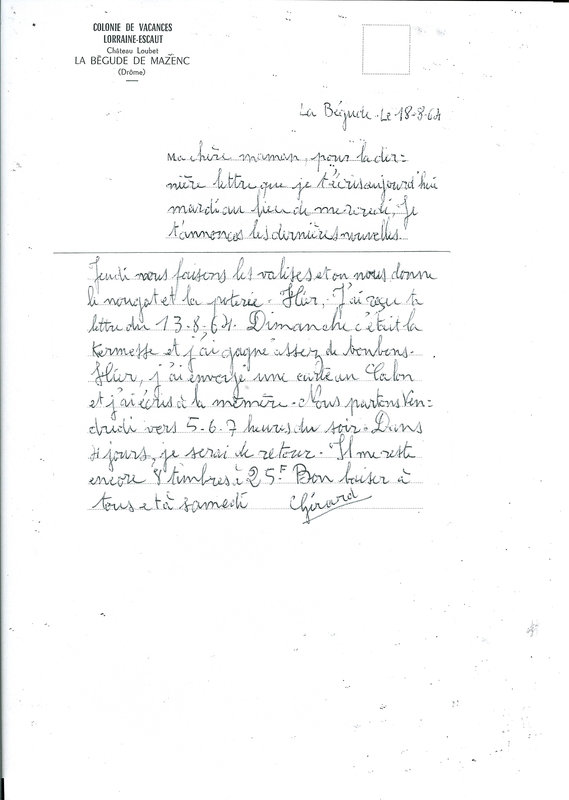 COLONIE DE VACANCES
LORRAINE-ESCAUT
Château Loubet
LA BÉGUDE DE MAZENC
(Drôme)
La Bégude. Le 18-8-64
Ma chère maman, pour la der=
nière lettre que je t'écris aujourd'hui
mardi au lieu de mercredi, Je
t'annonças les dernières nouvelles.
Jeudi nous faisons les valises et on nous donne
le nougat et la poterie. Hier, J'ai reçu ta
lettre du 13-8-64. Dimanche c'était la
Kermesse et j'ai gagné assez de bonbons.
Hier, j'ai envoyé une carte au
et j'ai écris à la mémère. Nous partons Ven=
dredi vers 5-6-7 heures du soir. Dans
4 jours, je serai de retour. Il me reste
encore 8 timbres à 25F Bon baiser à
tous et à samedi Gérard